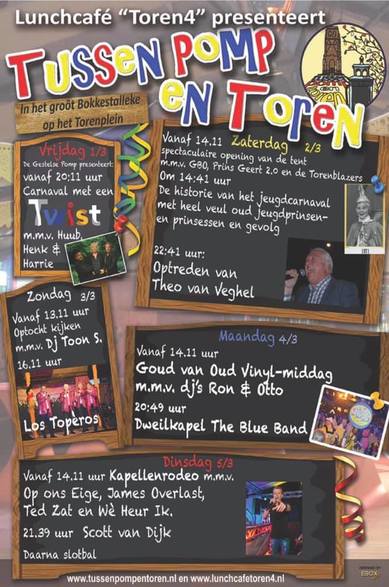 Lunchcafé “Toren4” presenteert
TUSSEN POMP
EN TOREN
In het groôt Bokkestalleke
op het Torenplein
Vrijdag 1/3
De Gestelse Pomp presenteert:
vanaf 20:11 uur
Carnaval met een
Twist
m.m.v. Huub,
Henk &
Harrie
Vanaf 14.11 Zaterdag 2/3
spectaculaire opening van de tent
m.m.v. G80, Prins Geert 2.0 en de Torenblazers
Om 14:41 uur
De historie van het jeugdcarnaval
met heel veul oud jeugdprinsen-
en prinsessen en gevolg
22:41 uur:
Optreden van
Theo van Veghel
Zondag 3/3
Vanaf 13.11 uur
Optocht kijken
m.m.v. Dj Toon S.
16.11 uur
Los Toperos
Maandag 4/3
Vanaf 14.11 uur
Goud van Oud Vinyl-middag
m.m.v. dj's Ron & Otto
20:49 uur
Dweilkapel The Blue Band
Dinsdag 5/3
Vanaf 14.11 uur Kapellenrodeo m.m.v.
Op ons Eige, James Overlast,
Ted Zat en Wè Heur Ik.
21.39 uur Scott van Dijk
Daarna slotbal
www.tussenpompentoren.nl en www.lunchcafetoren4.nl